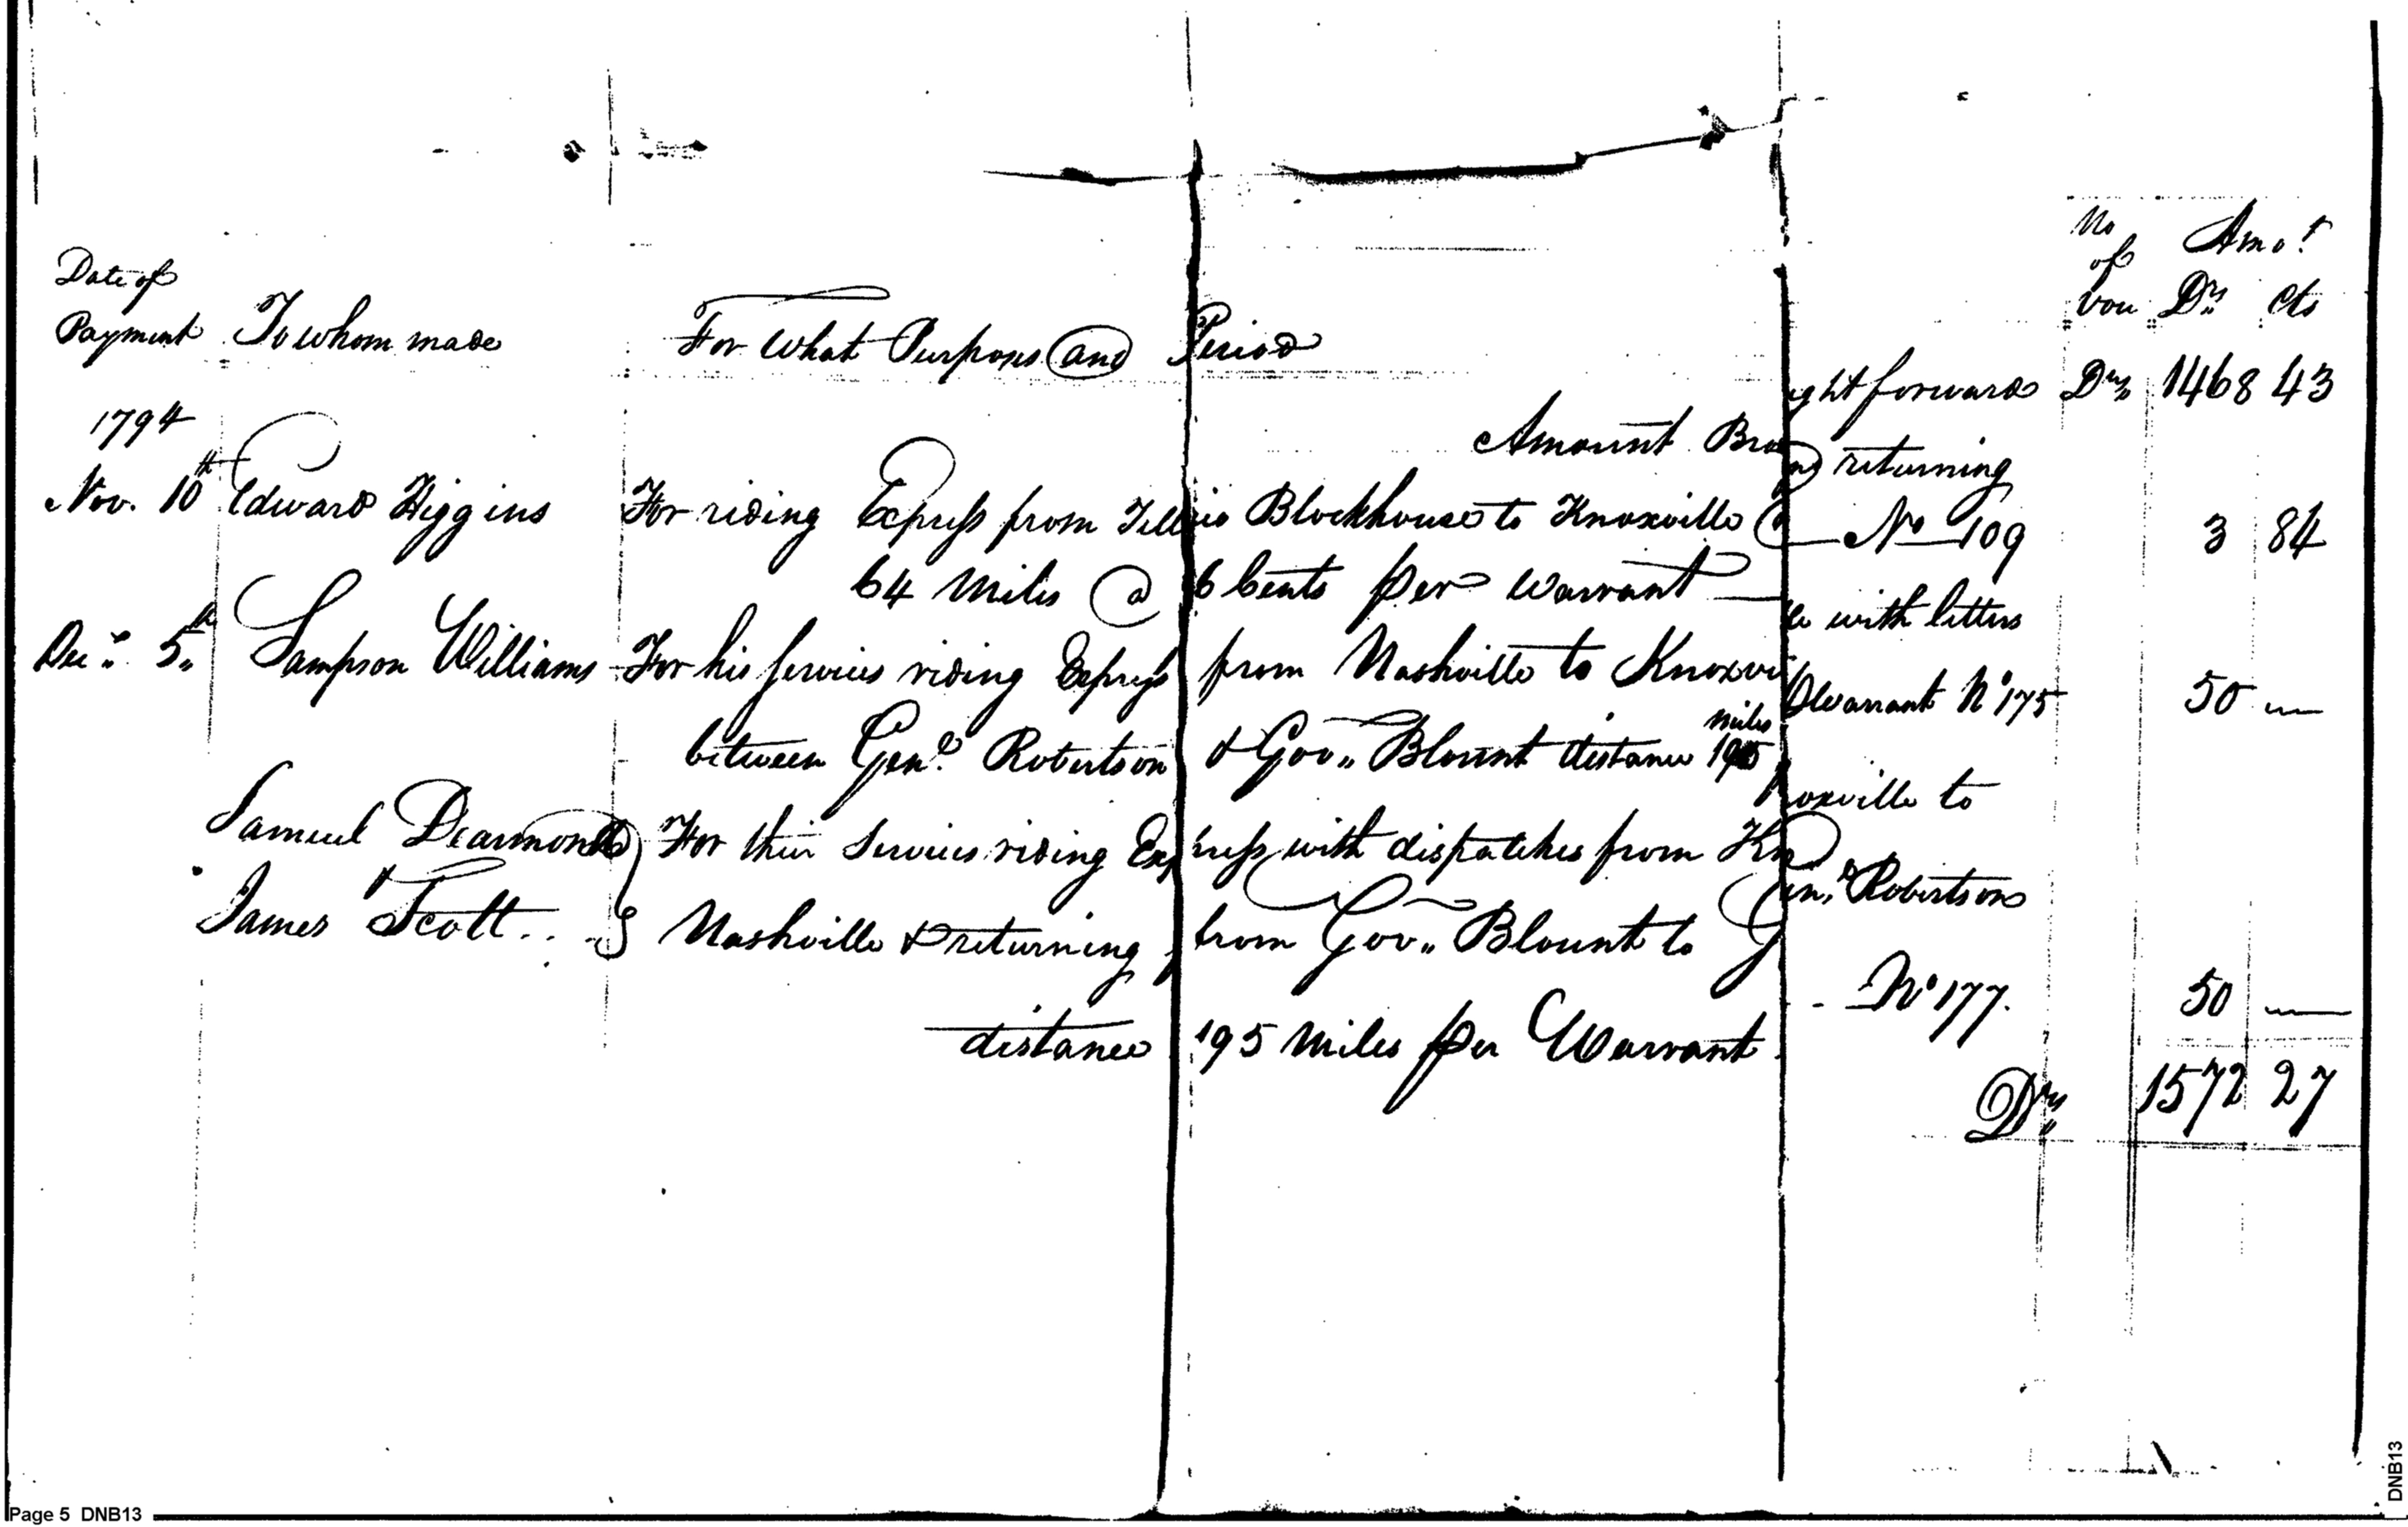 No Amot
Date of of
Payment To whom made For What Purposes and Period vou Drs Cts
1794 Amount Brought forward Drs 1468 43
Nov. 10th Edward Higgins For riding Express from Tellico Blockhouse to Knoxville and returning
64 Miles @ 6 Cents per warrant — No 109 3 84
Decr 5th Sampson Williams For his services riding Express from Nashville to Knoxville with letters
between Genl Robertson & Gov. Blount distance miles Warrant No 175 50 —
Samuel Dearmond For their Services riding Express with dispatches from Knoxville to
& James Scott Nashville & returning from Gov. Blount to Genl Robertson
distance 195 Miles per Warrant - No 177. 50 —
Drs 1572 27
Page 5 DNB13
DNB13